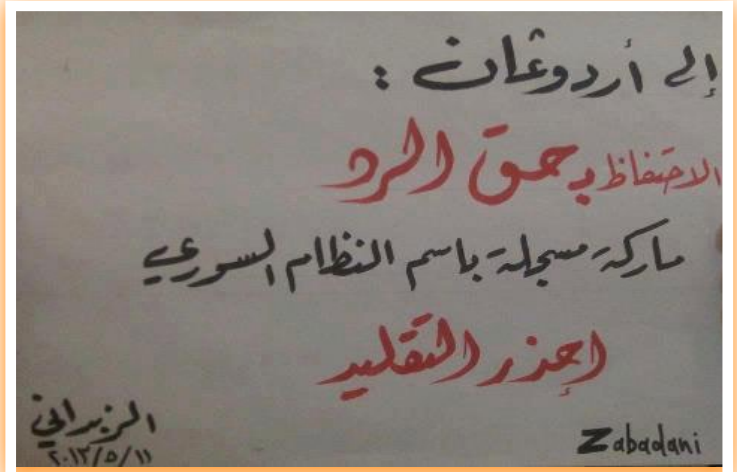 إلى أردوغان :
الاحتفاظ بحق الرد
ماركة مسجلة باسم النظام السوري
احذر التقليد
الزبداني
٢٠١٣/٥/١١
Zabadani